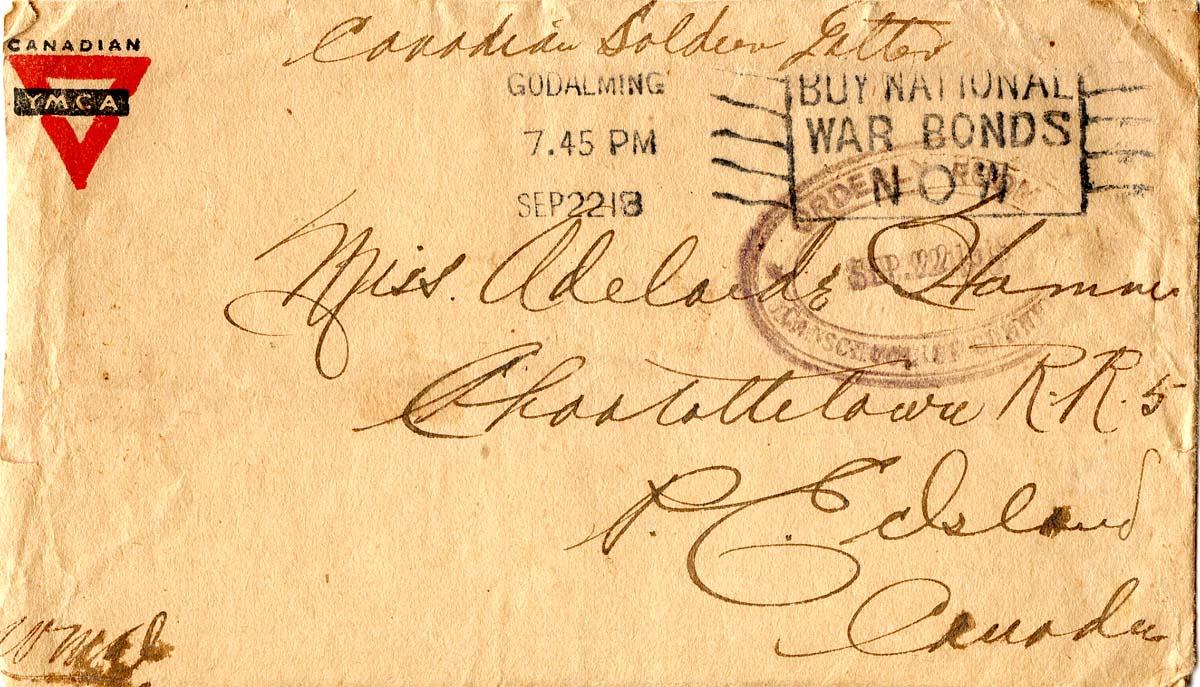 CANADIAN
YMCA
Canadian Soldier Letter
GODALMING
7.45 PM
SEP 22 18
BUY NATIONAL
WAR BONDS
NOW
ORDERLY ROOM
SEP. 22 191
Miss. Adelaide Hamm
Charlottetown R.R. 5
P. E. Island
Canada